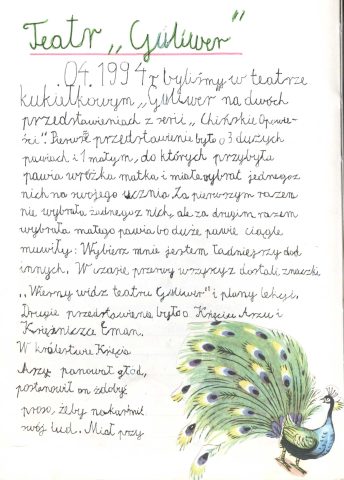 Teatr „Guliwer"
04.1994r byliśmy w teatrze
kukiełkowym „Guliwer na dwóch
przedstawieniach z serii „Chińskie Opowie-
ści". Pierwsze przedstawienie było o 3 dużych
pawiach i 1 małym, do których przybyła
pawia wróżka matka i miała wybrać jednego z
nich na swojego ucznia. Za pierwszym razem
nie wybrała żadnego z nich, ale za drugim razem
wybrała małego pawia bo duże pawie ciągle
mówiły: Wybierz mnie jestem ładniejszy od
innych. W czasie przerwy wszyscy dostali znaczki
„Wierny widz teatru Guliwer" i plany lekcji.
Drugie przedstawienie było o Księciu Arzu i
Księżniczce Eman.
W królestwie Księcia
Arzu panował głód,
postanowił on zdobyć
proso, żeby nakarmić
swój lud. Miał przy